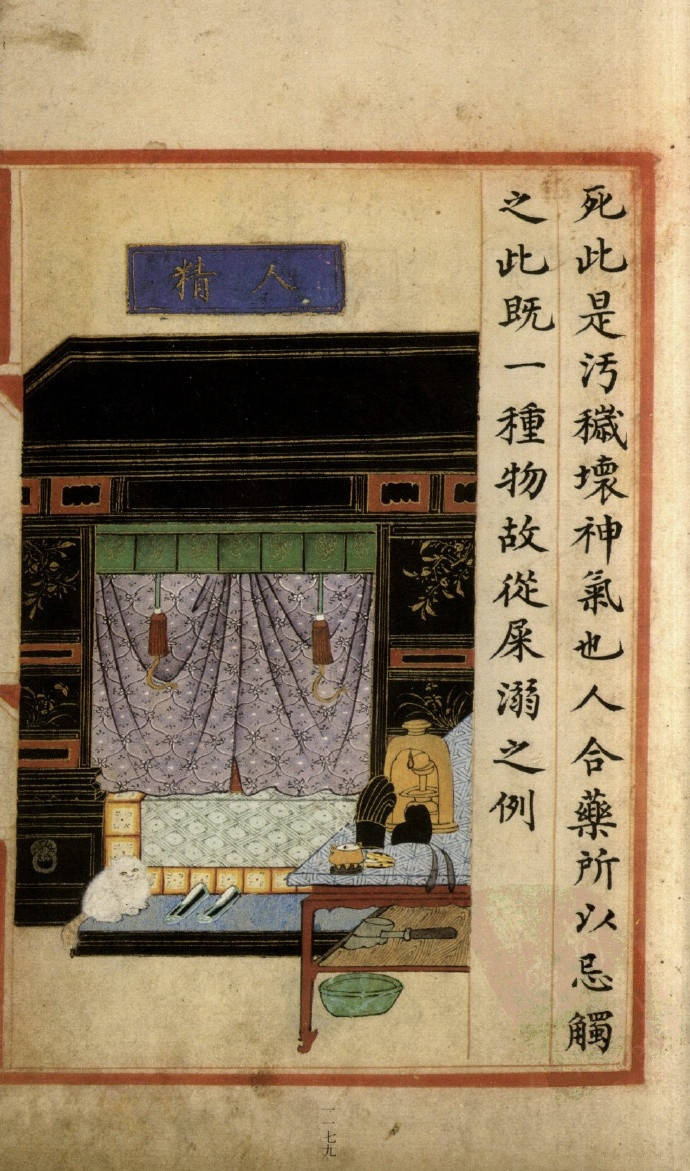 死此是汚穢壞神氣也人合藥所以忌觸
之此既一種物故從屎溺之例
人精
一一七九